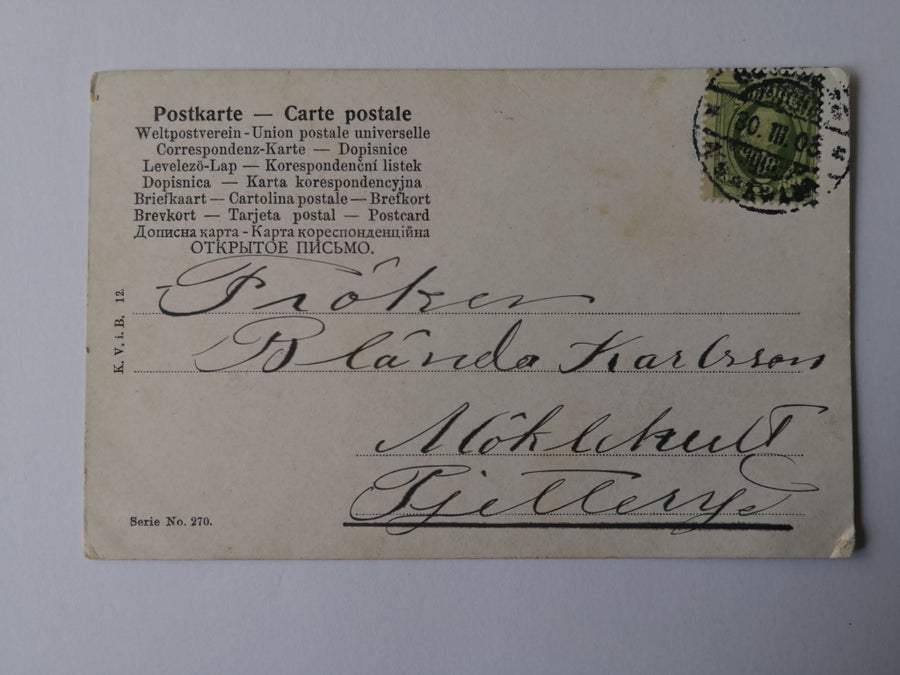 Postkarte — Carte postale
Weltpostverein - Union postale universelle
Correspondenz-Karte — Dopisnice
Levelező-Lap — Korespondenční listek
Dopisnica — Karta korespondencyjna
Briefkaart — Cartolina postale — Brefkort
Brevkort — Tarjeta postal — Postcard
Дописна карта - Карта кореспонденційна
ОТКРЫТОЕ ПИСЬМО.
Fröken
Blända Karlsson
Möklehult
Pjetteryd
K. V. i. B. 12.
Serie No. 270.